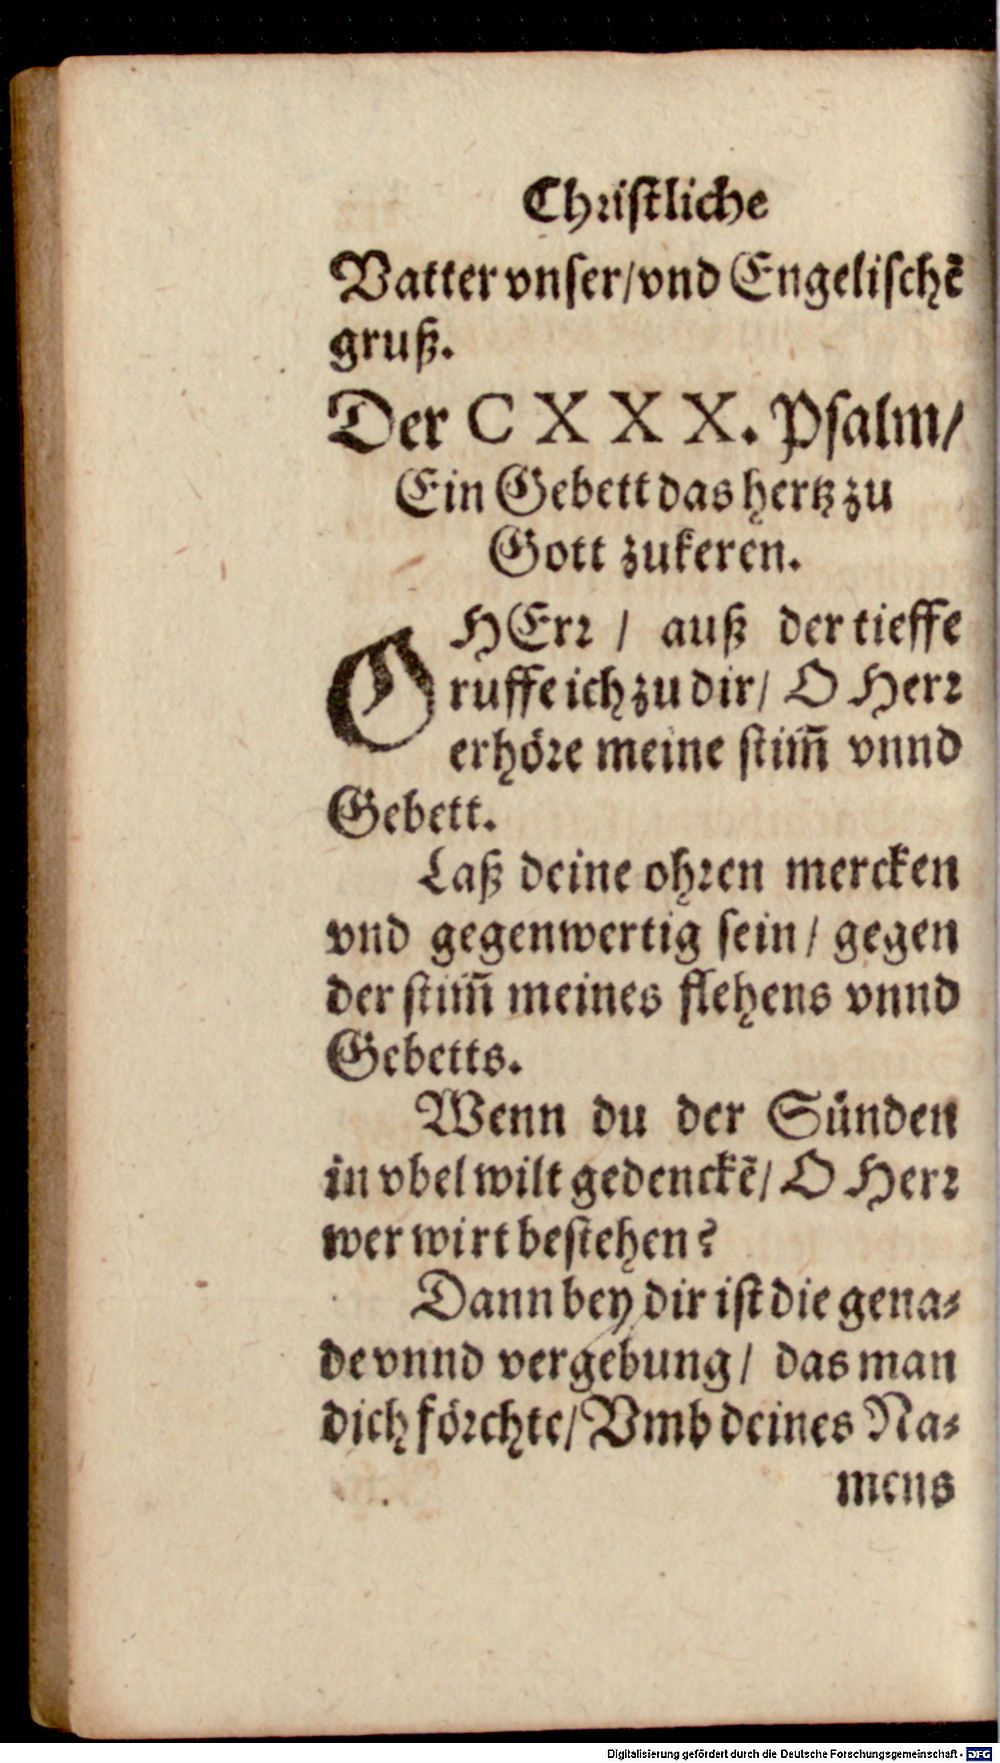 Christliche
Vatter vnser/vnd Engelischẽ
gruß.
Der CXXX. Psalm/
Ein Gebett das hertz zu
Gott zukeren.
O HErr / auß der tieffe
ruffe ich zu dir/ O Herr
erhöre meine stim̃ vnnd
Gebett.
Laß deine ohren mercken
vnd gegenwertig sein / gegen
der stim̃ meines flehens vnnd
Gebetts.
Wenn du der Sünden
in vbel wilt gedenckẽ/ O Herr
wer wirt bestehen?
Dann bey dir ist die gena-
de vnnd vergebung/ das man
dich förchte/ Vmb deines Na-
mens
Digitalisierung gefördert durch die Deutsche Forschungsgemeinschaft - DFG